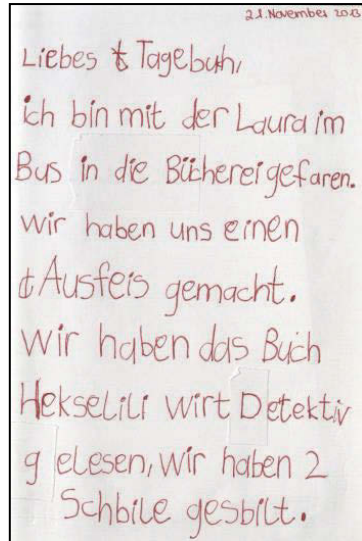 21. November 2013
Liebes Tagebuh,
ich bin mit der Laura im
Bus in die Bücherei gefaren.
wir haben uns einen
Ausfeis gemacht.
wir haben das Buch
Hekselili wirt Detektiv
gelesen, wir haben 2
Schbile gesbilt.